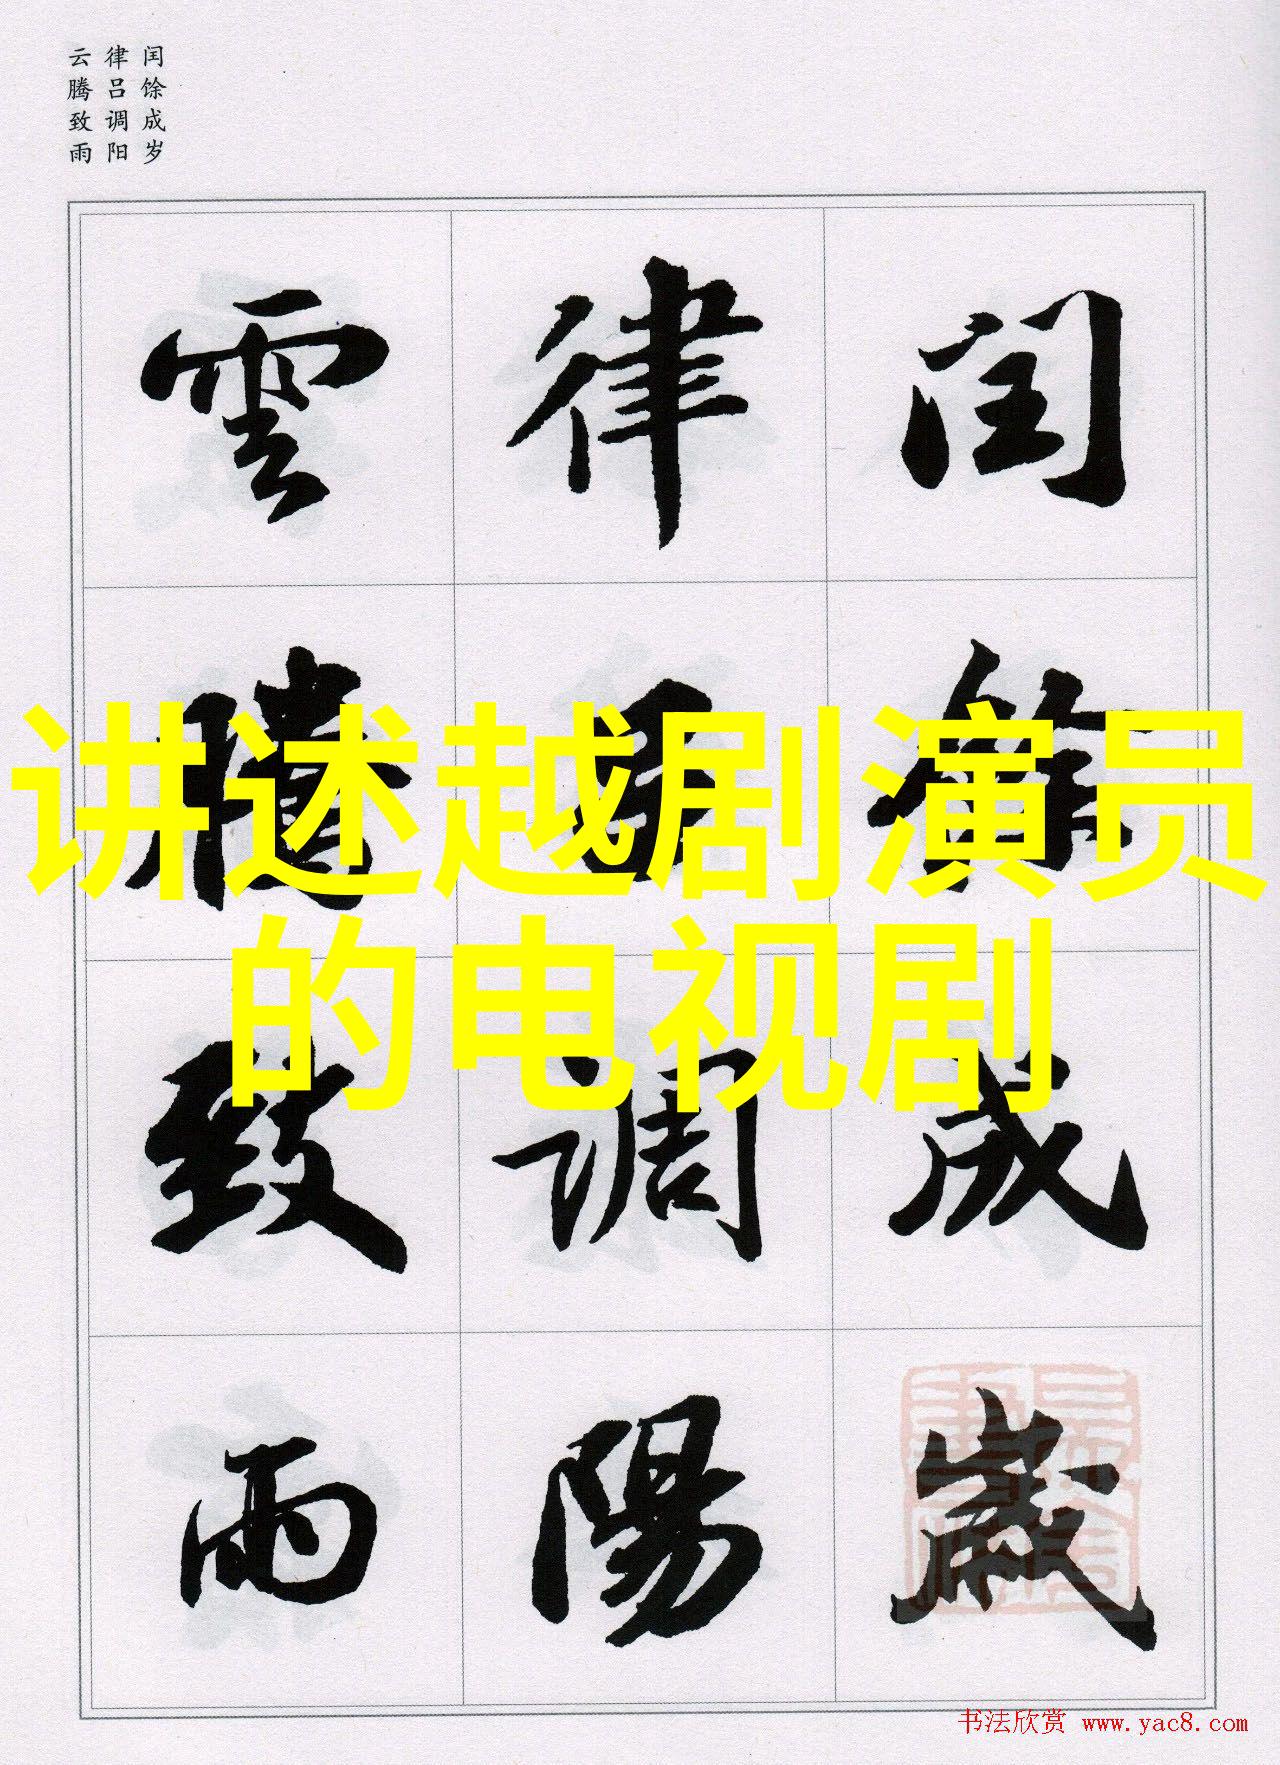 闰馀成岁
律吕调阳
云腾致雨
閏餘成歲
律吕調陽
雲騰致雨
讲述越剧演员
的电视剧
书法欣赏 www.yac8.com